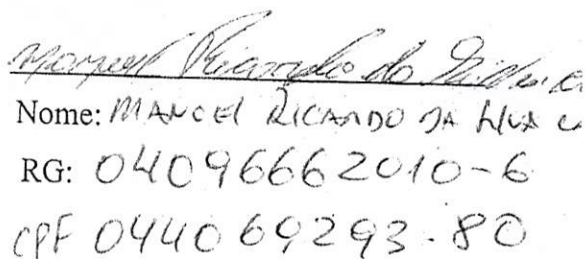 Manoel Ricardo da Silva
Nome: MANOEl RICARDO DA
RG: 04096662010-6
CPF 044069293-80